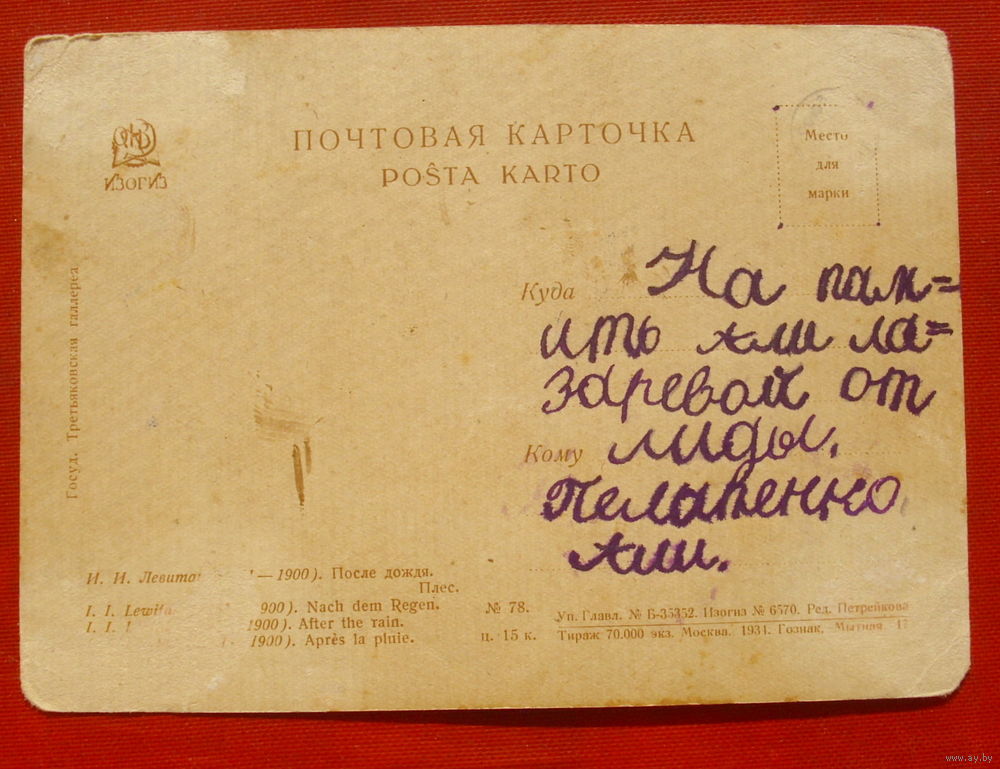 ИЗОГИЗ
ПОЧТОВАЯ КАРТОЧКА
POŜTA KARTO
Место
для
марки
Госуд. Третьяковская галлерея
Куда
На пам=
ить Али ла=
заревой от
Кому
лиды.
Али.
И. И. Левита —1900). После дождя.
Плес.
I. I. Lewita 900). Nach dem Regen.
I. I. 1900). After the rain.
1900). Après la pluie.
№ 78.
ц. 15 к.
Уп. Главл. № Б-35352. Изогиз № 6570. Ред. Петрейкова
Тираж 70.000 экз. Москва. 1934. Гознак. Мытная, 17
www.ay.by